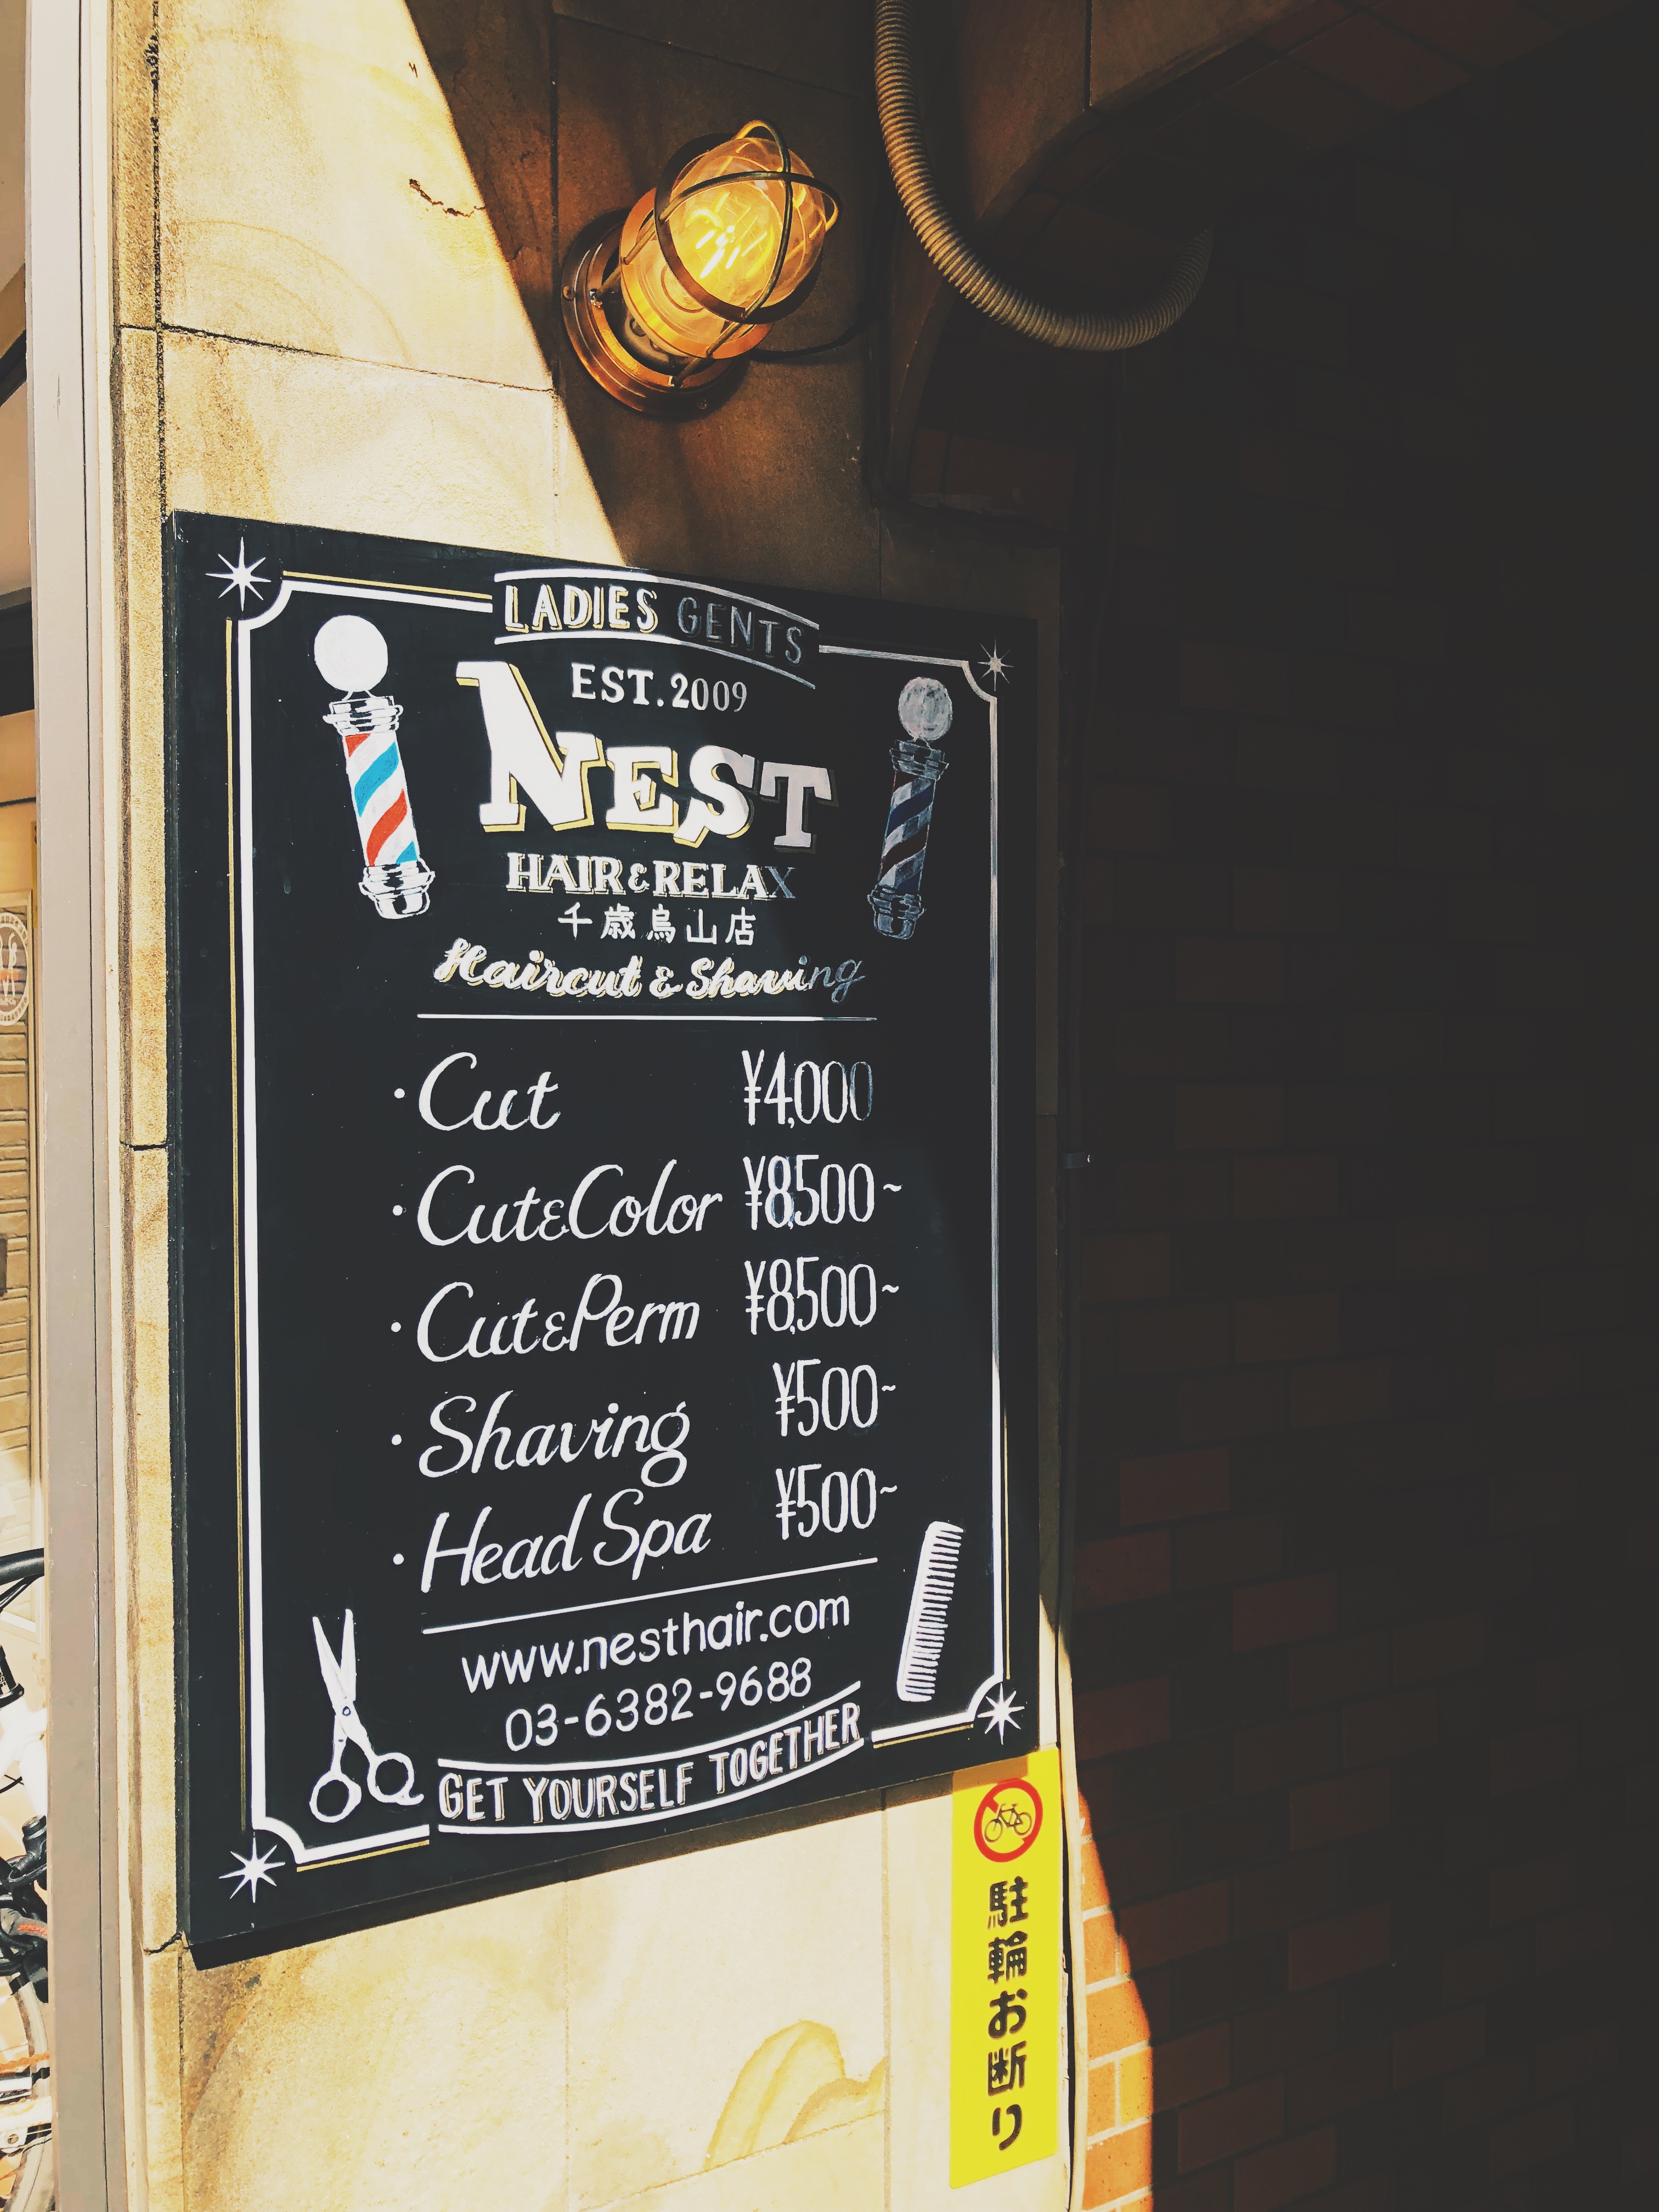 LADIES GENTS
EST.2009
NEST
HAIR & RELAX
千歳烏山店
Haircut & Shaving
・Cut ¥4,000
・Cut&Color ¥8,500~
・Cut&Perm ¥8,500~
・Shaving ¥500~
・Head Spa ¥500~
www.nesthair.com
03-6382-9688
GET YOURSELF TOGETHER
駐輪お断り